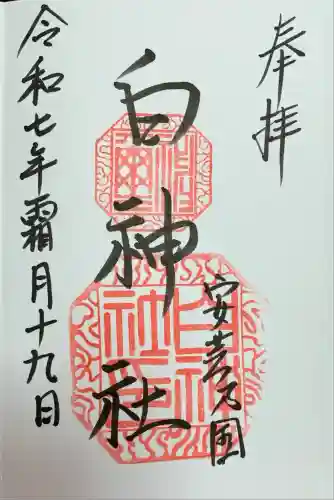 奉拝
白神社
安芸乃国
令和七年霜月十九日